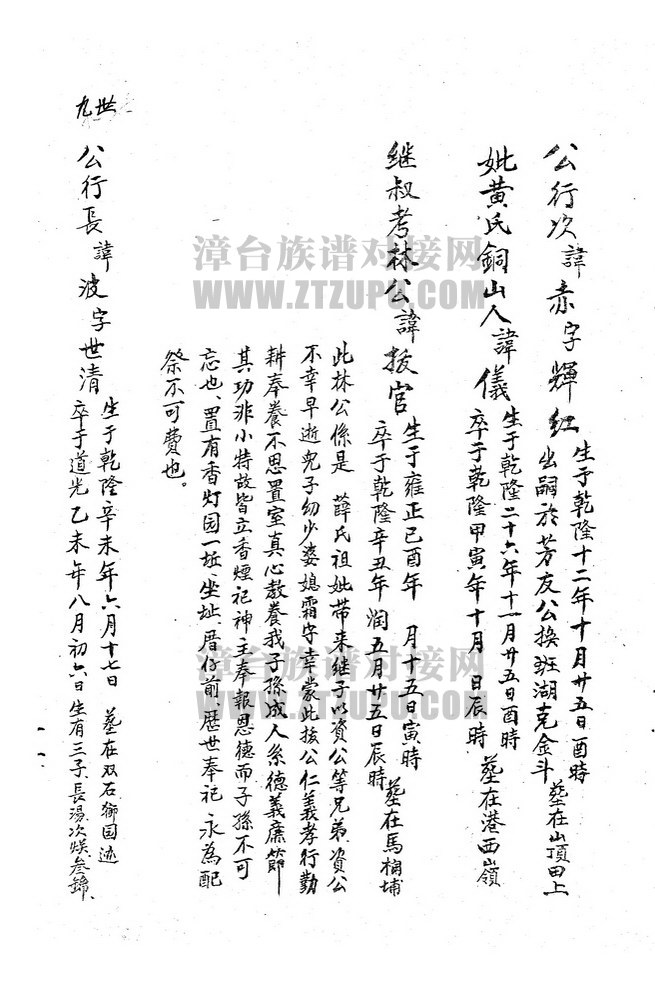 公行次諱赤字輝紅 生于乾隆十二年十月廿五日酉時
出嗣於芳友公換班湖克金斗 墓在山頂田上
妣黄氏銅山人諱儀 生于乾隆二十六年十一月廿五日酉時
卒于乾隆甲寅年十月 日辰時 墓在港西嶺
継叔考林公諱拔官 生于雍正己酉年 月十五日寅時
卒于乾隆辛丑年潤五月廿五日辰時 墓在馬 埔
此林公係是 薛氏祖妣带来继子以資公等兄弟資公
不幸早逝兒子幼少婆媳霜守幸蒙此拔公仁義孝行勤
耕奉養不思置室真心教養我子孫成人系德義廉節
其功非小特故皆立香煙祀神主奉報恩德而子孫不可
忘也、置有香灯园一坵、坐址、厝仔前歷世奉祀永為配
祭不可費也。
九世
公行長諱波字世清 生于乾隆辛未年六月十七日 墓在双石獅园边
卒于道光乙未年八月初六日生有三子、長湯次 叁錦、
漳台族谱对接网
WWW.ZTZUPU.COM
漳台族谱对接网
WWW.ZTZUPU.COM